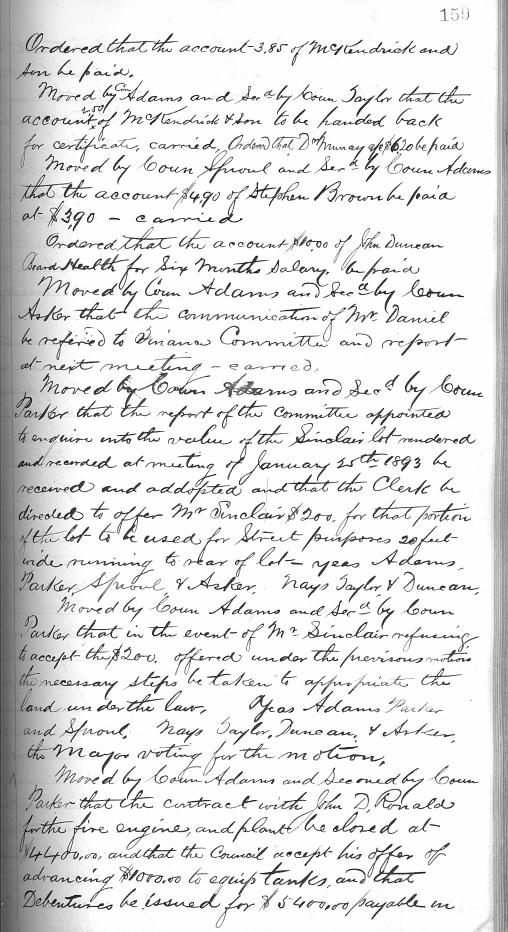 159
Ordered that the account 3.85 of McKendrick and
son be paid.
Moved by Coun Adams and Secd by Coun Taylor that the
account 2.50 of McKendrick & son to be handed back
for certificate, carried, Ordered that Dr Murray a/c $6.20 be paid
Moved by Coun Sproul and Secd by Coun Adams
that the account $4.90 of Stephen Brown be paid
at $3.90 - carried
Ordered that the account $10.00 of John Duncan
Board Health for Six Months Salary, be paid
Moved by Coun Adams and Secd by Coun
Asker that the communication of Mr. Daniel
be referred to Finance Committee and report
at next meeting - carried,
Moved by Coun Adams and Secd by Coun
Parker that the report of the committee appointed
to enquire into the value of the Sinclair lot rendered
and recorded at meeting of January 25th 1893 be
received and addopted and that the Clerk be
directed to offer Mr Sinclair $200. for that portion
of the lot to be used for Street purposes 20 feet
wide running to rear of lot - yeas Adams,
Parker, Sproul, & Asker. Nays Taylor & Duncan,
Moved by Coun Adams and Secd by Coun
Parker that in the event of Mr Sinclair refusing
to accept the $200. offered under the previsous motion
the necessary steps be taken to appropriate the
land under the law, Yeas Adams Parker
and Sproul. Nays Taylor, Duncan, & Asker,
the Mayor voting for the motion,
Moved by Coun Adams and Seconed by Coun
Parker that the contract with John D. Ronald
for the fire engine, and plant be closed at
$4400.00, and that the Council accept his offer of
advancing $1000.00 to equip tanks, and that
Debentures be issued for $5400.00 payable in